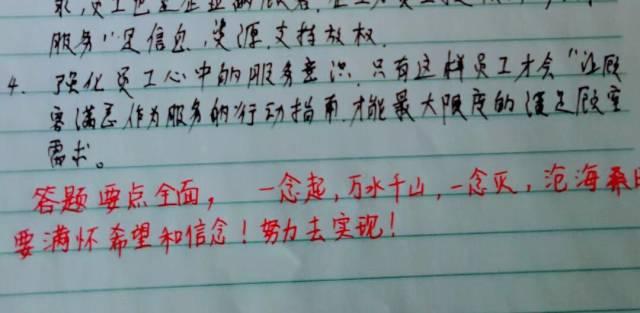 求,员工也是企业的顾客,在
服务"是信息,资源,支持放权.
4. 强化员工心中的服务意识.只有这样员工才会"让顾
客满意作为服务的行动指南.才能最大限度的满足顾客
需求。
答题要点全面, 一念起,万水千山,一念灭,沧海桑田
要满怀希望和信念!努力去实现!